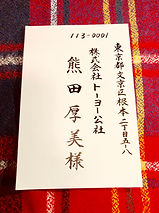 113-0001
東京都文京区根本二丁目五-八
株式会社トーヨー公社
熊田厚美様